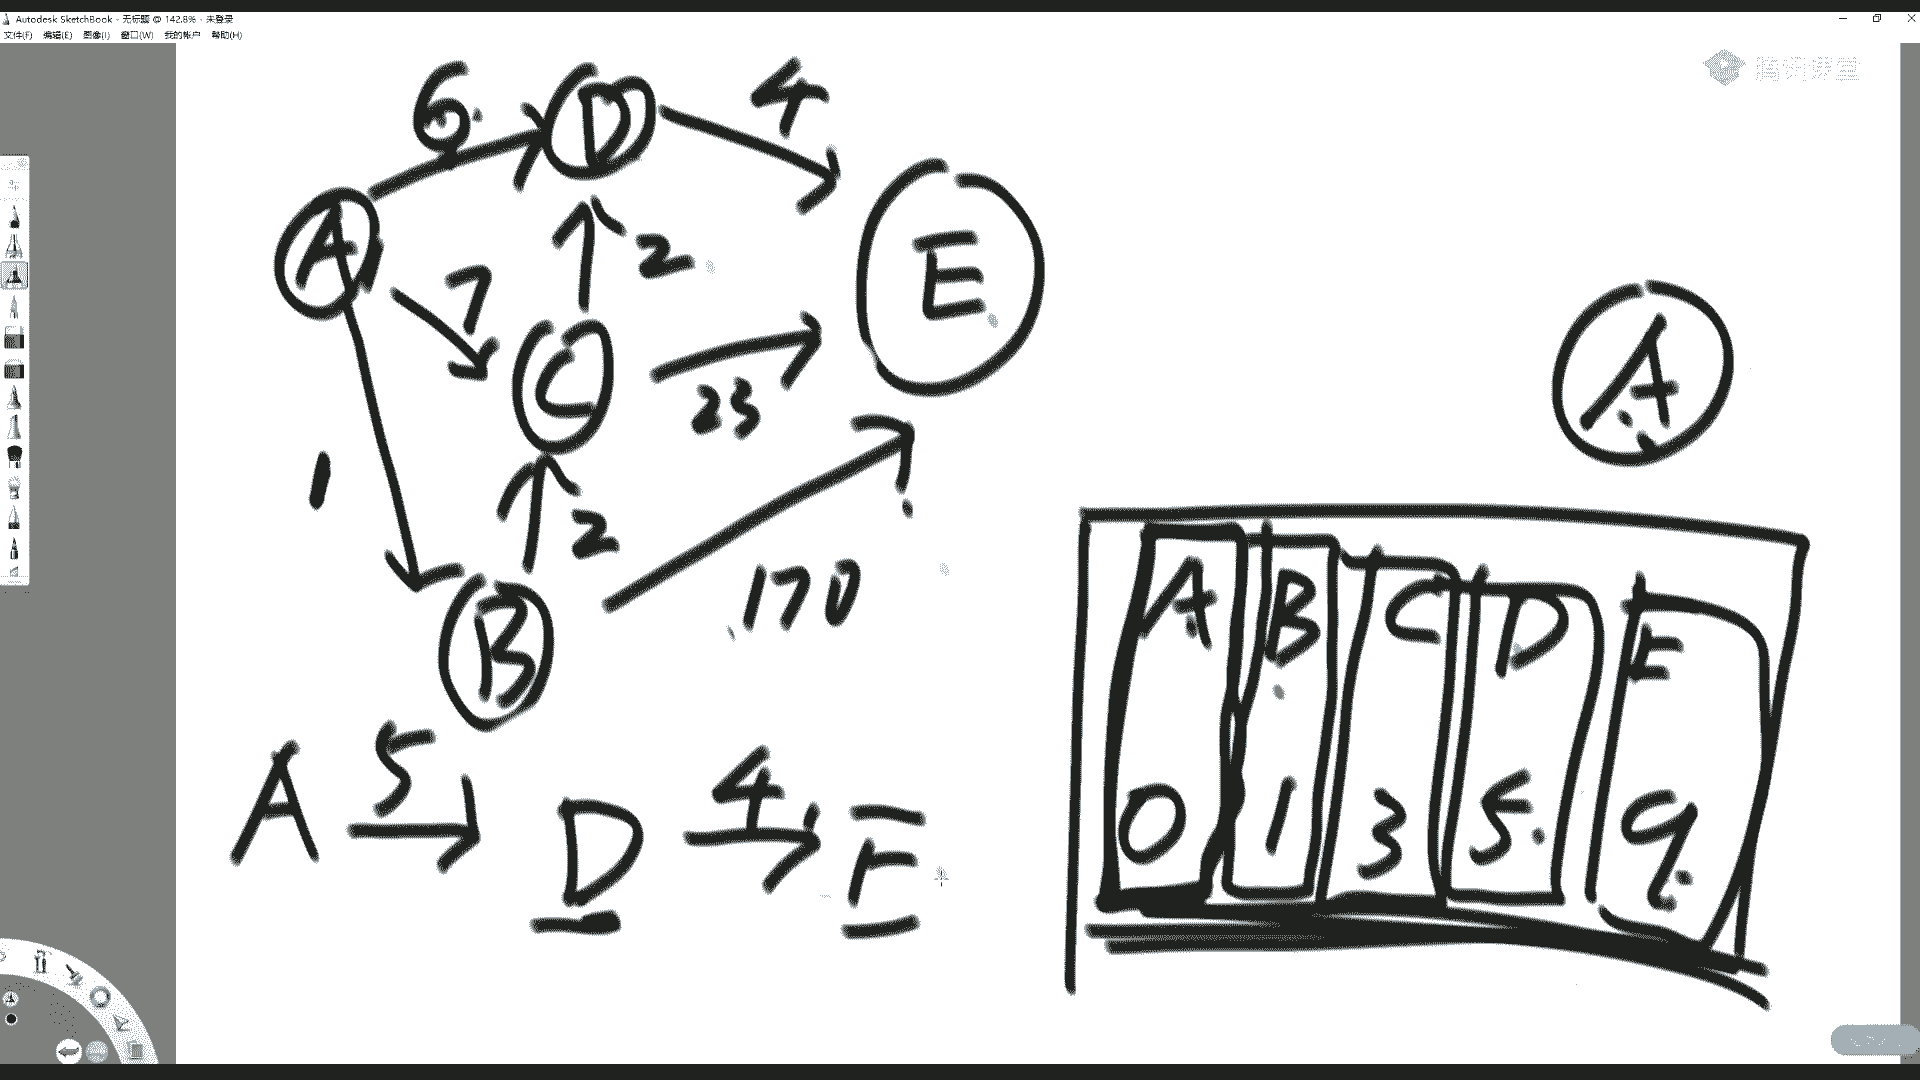 Autodesk SketchBook - 无标题 @ 142.8% - 未登录
文件(F) 编辑(E) 图像(I) 窗口(W) 我的帐户 帮助(H)
腾讯课堂
6
D
4
A
7
2
E
C
23
A
1
2
170
B
A B C D E
0 1 3 5 9
A 5 D 4 E